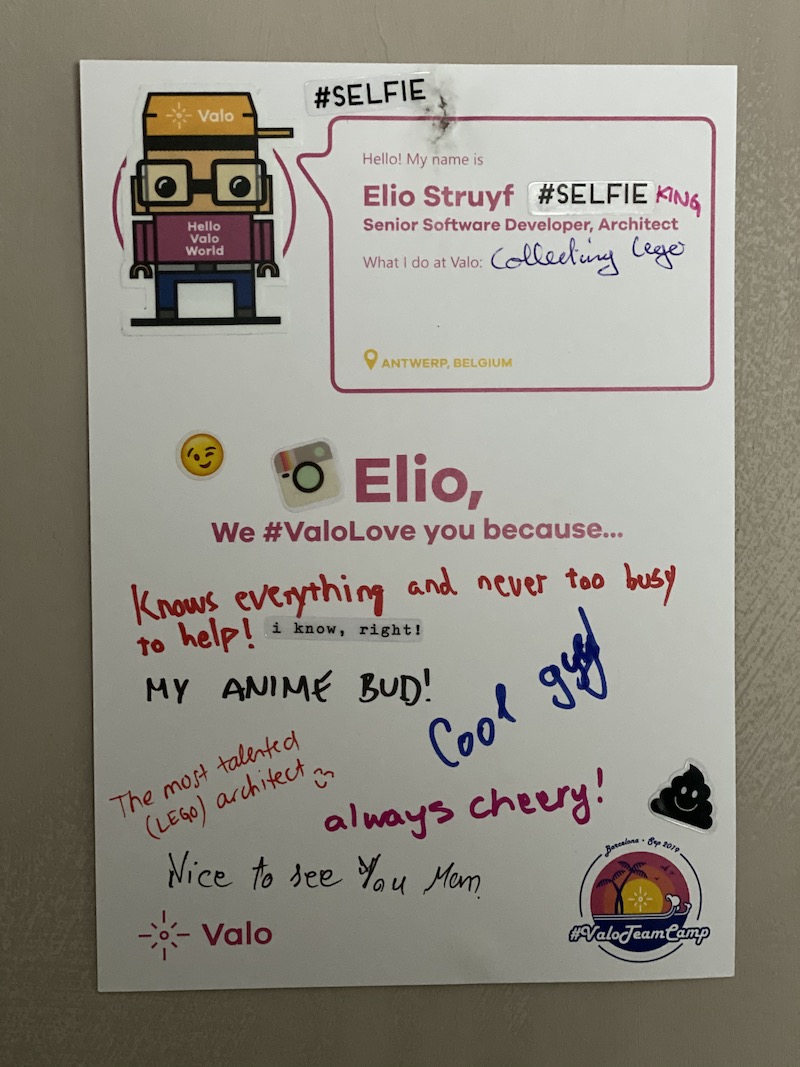 #SELFIE
Valo
Hello
Valo
World
Hello! My name is
Elio Struyf #SELFIE KING
Senior Software Developer, Architect
What I do at Valo: Collecting Lego
ANTWERP, BELGIUM
Elio,
We #ValoLove you because...
Knows everything and never too busy
to help! i know, right!
MY ANIME BUD!
Cool guy
The most talented
(LEGO) architect
always cheery!
Nice to see You Man
Valo
Barcelona • Sep 2019
#ValoTeamCamp